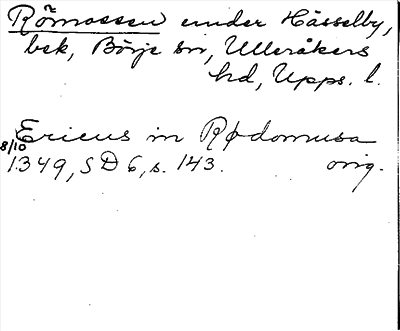 Römossen under Hässelby,
bsk, Börje sn, Ulleråkers
hd, Upps. l.
Ericus in Rødomusa
8/10 1349, SD 6, s. 143. orig.